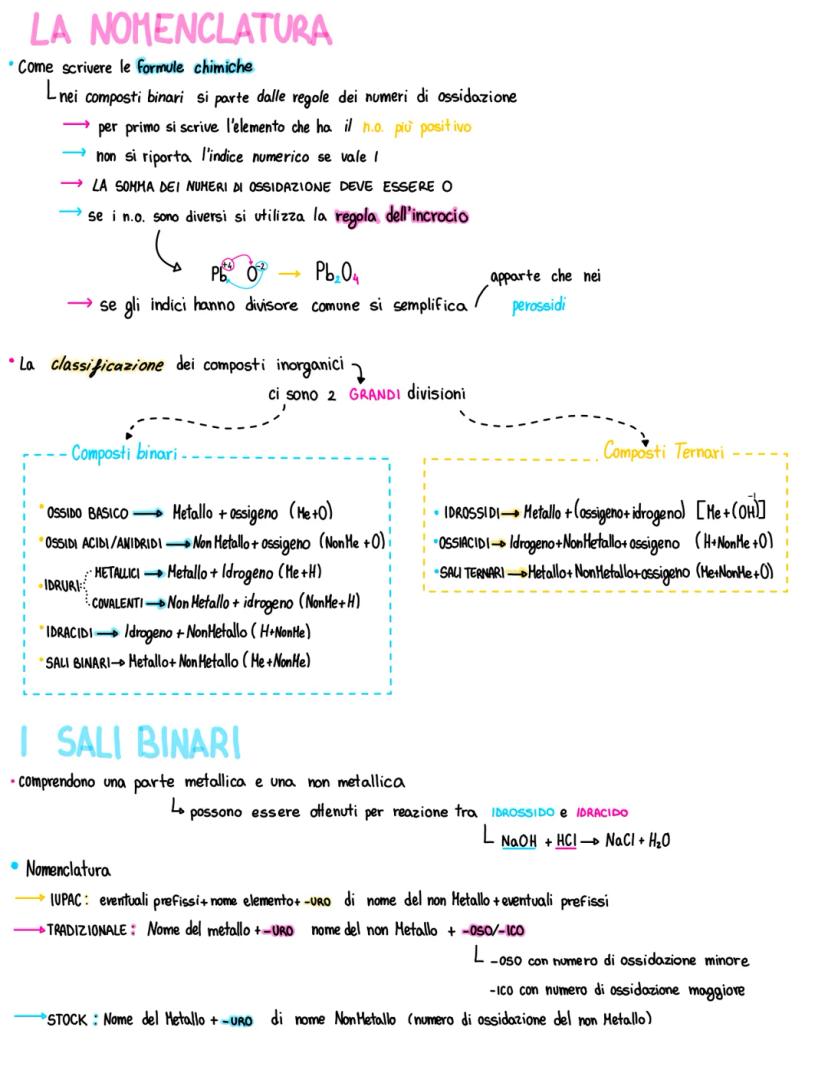 LA NOMENCLATURA
• Come scrivere le formule chimiche
nei composti binari si parte dalle regole dei numeri di ossidazione
→ per primo si scrive l'elemento che ha il n.o. più positivo
→ non si riporta l'indice numerico se vale 1
→ LA SOMMA DEI NUMERI DI OSSIDAZIONE DEVE ESSERE 0
→ se i n.o. sono diversi si utilizza la regola dell'incrocio
Pb⁺⁴ O⁻² → Pb₂O₄
apparte che nei
→ se gli indici hanno divisore comune si semplifica perossidi
• La classificazione dei composti inorganici
ci sono 2 GRANDI divisioni
Composti binari
• OSSIDO BASICO → Metallo + ossigeno (Me+O)
• OSSIDI ACIDI/ANIDRIDI → Non Metallo + ossigeno (NonMe +O)
• IDRURI: METALLICI → Metallo + Idrogeno (Me+H)
COVALENTI → Non Metallo + idrogeno (NonMe+H)
• IDRACIDI → Idrogeno + NonMetallo (H+NonMe)
• SALI BINARI → Metallo + Non Metallo (Me+NonMe)
Composti Ternari
• IDROSSIDI → Metallo + (ossigeno+idrogeno) [Me+(OH)⁻¹]
• OSSIACIDI → Idrogeno+NonMetallo+ossigeno (H+NonMe+O)
• SALI TERNARI → Metallo+NonMetallo+ossigeno (Me+NonMe+O)
I SALI BINARI
• comprendono una parte metallica e una non metallica
↳ possono essere ottenuti per reazione tra IDROSSIDO e IDRACIDO
NaOH + HCl → NaCl + H₂O
• Nomenclatura
→ IUPAC: eventuali prefissi + nome elemento + -URO di nome del non Metallo + eventuali prefissi
→ TRADIZIONALE: Nome del metallo + -URO nome del non Metallo + -OSO/-ICO
-OSO con numero di ossidazione minore
-ICO con numero di ossidazione maggiore
→ STOCK: Nome del Metallo + -URO di nome NonMetallo (numero di ossidazione del non Metallo)